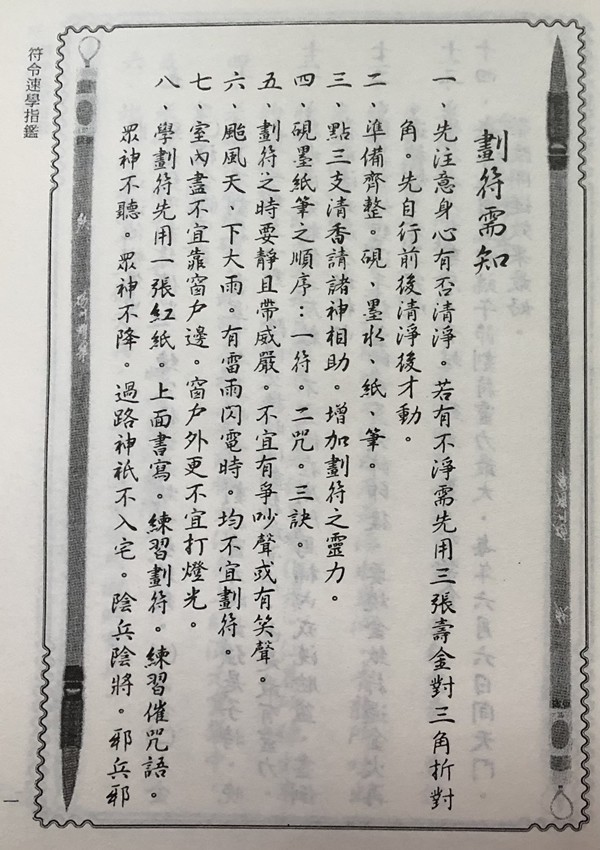 劃符需知
一、先注意身心有否清淨。若有不淨需先用三張壽金對三角折對
角。先自行前後清淨後才動。
二、準備齊整。硯、墨水、紙、筆。
三、點三支清香請諸神相助。增加劃符之靈力。
四、硯墨紙筆之順序:一符。二咒。三訣。
五、劃符之時要靜且帶威嚴。不宜有爭吵聲或有笑聲。
六、颱風天、下大雨。有雷雨閃電時。均不宜劃符。
七、室內盡不宜靠窗戶邊。窗戶外更不宜打燈光。
八、學劃符先用一張紅紙。上面書寫。練習劃符。練習催咒語。
眾神不聽。眾神不降。過路神祇不入宅。陰兵陰將。邪兵邪
符令速學指鑑
一